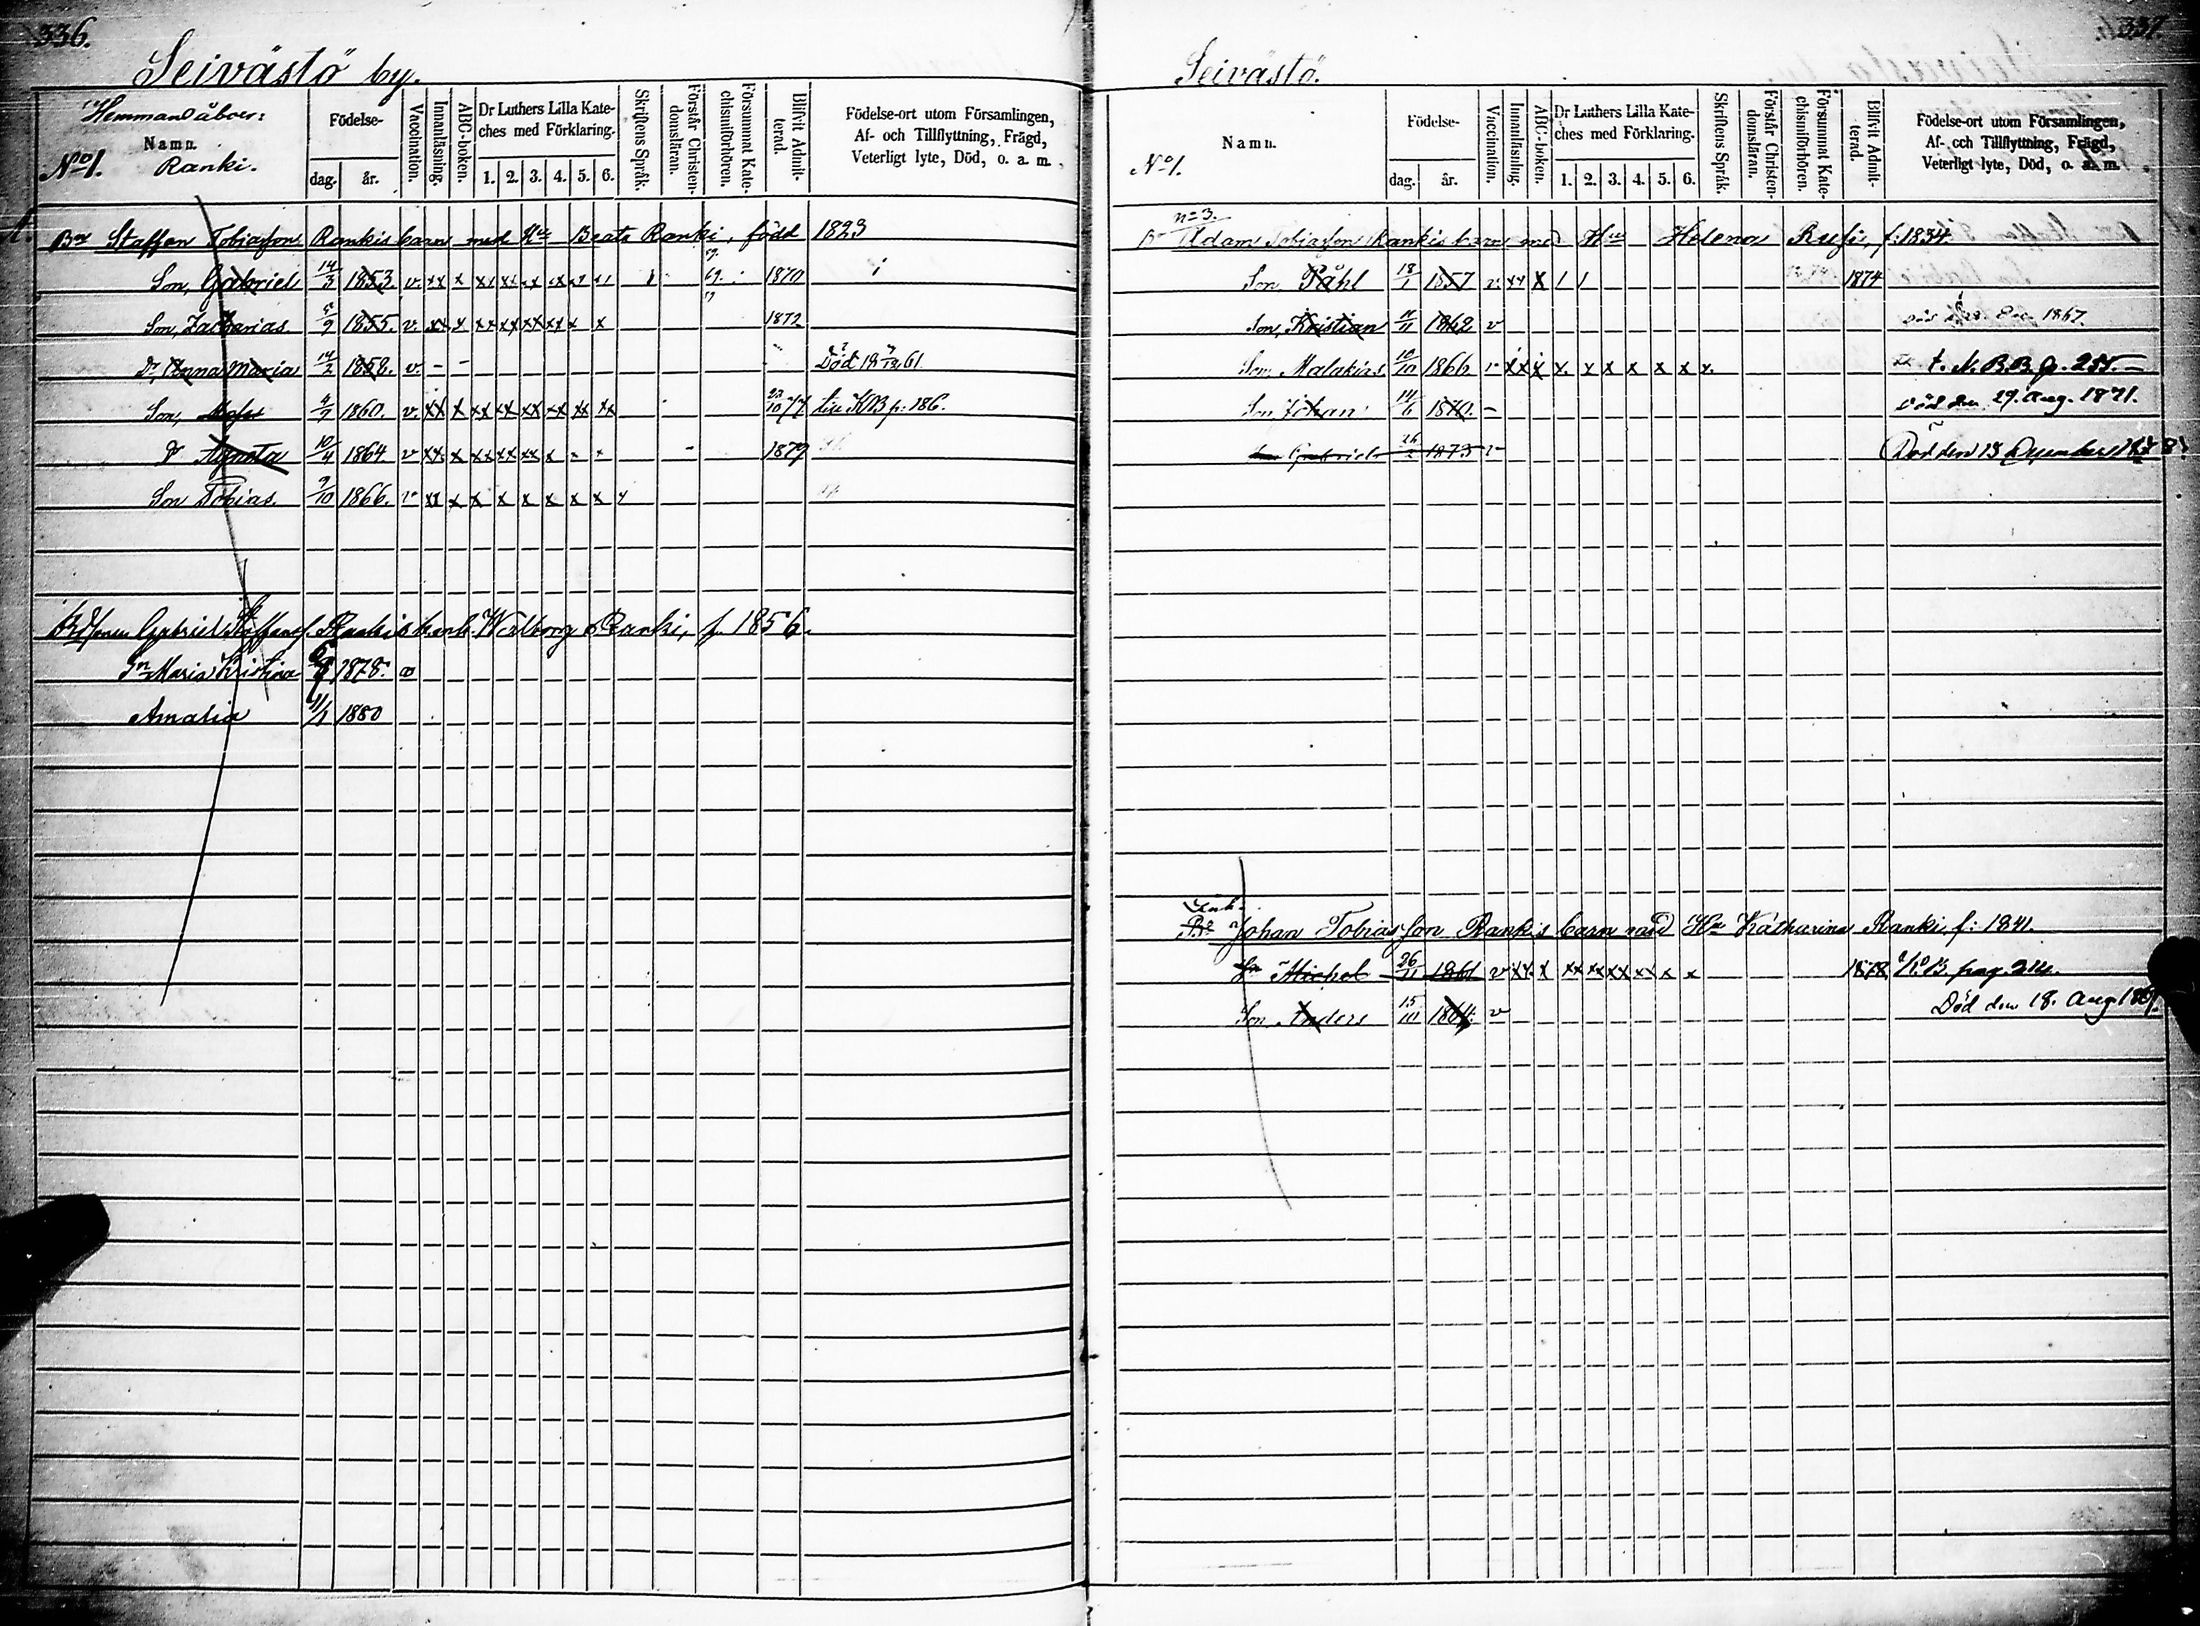 336.
Seivästö by.
Hemmansåboer:
Namn.
No 1. Ranki.
Födelse-
dag. år.
Vaccination.
Innanläsning.
ABC-boken.
Dr Luthers Lilla Kate-
ches med Förklaring.
1. 2. 3. 4. 5. 6.
Skriftens Språk.
Förstår Christen-
domsläran.
Försummat Kate-
chismiförhören.
Blifvit Admit-
terad.
Födelse-ort utom Församlingen,
Af- och Tillflyttning, Frägd,
Veterligt lyte, Död, o. a. m.
Staffan Tobiasson Rankis barn med Beata Ranki, född 1823
Son, Gabriel 14/3 1853 v xx x 69. 1870
Son, Zacharias 1855 v xx x xx xx xx xx x x 1872
Dr, Anna Maria 14/2 1858 v - - Död 61
Son, 1860. v. xx x xx xx xx xx xx xx 77 till KB p: 186.
Dr Agneta 10/4 1864 v xx x xx xx xx x - x - 1879
Son Tobias. 9/10 1866. v xx x x x x x x x x
Gabriel Staffans. Rankis Walborg Ranki, f. 1856.
Maria Kristina 1878.
Amalia 11/1 1880
337.
Seivästö.
No 1.
Namn.
Födelse-
dag. år.
Vaccination.
Innanläsning.
ABC-boken.
Dr Luthers Lilla Kate-
ches med Förklaring.
1. 2. 3. 4. 5. 6.
Skriftens Språk.
Förstår Christen-
domsläran.
Försummat Kate-
chismiförhören.
Blifvit Admit-
terad.
Födelse-ort utom Församlingen,
Af- och Tillflyttning, Frägd,
Veterligt lyte, Död, o. a. m.
no 3.
Adam Tobiasson Rankis barn med Hu Helena Rusi, f: 1834
Son, Påhl 18/1 1857 v xx x / / 1874
Son, Kristian 1862 v 1867.
Son, Malakias 10/10 1866 v xx x x x x x x x t. N. B.B. p. 255.
Son Johan 14/6 1870. - Död den 29. Aug. 1871.
Gabriel 26/2 1873 v Död den 13 December
Johan Tobiasson Rankis barn med Hu Katharina Ranki, f: 1841.
Sn Michel 26/11 1861 v xx x xx xx xx xx x x 1878 KB. pag.
Son Anders 15/10 1864. v Död den 18. Aug.